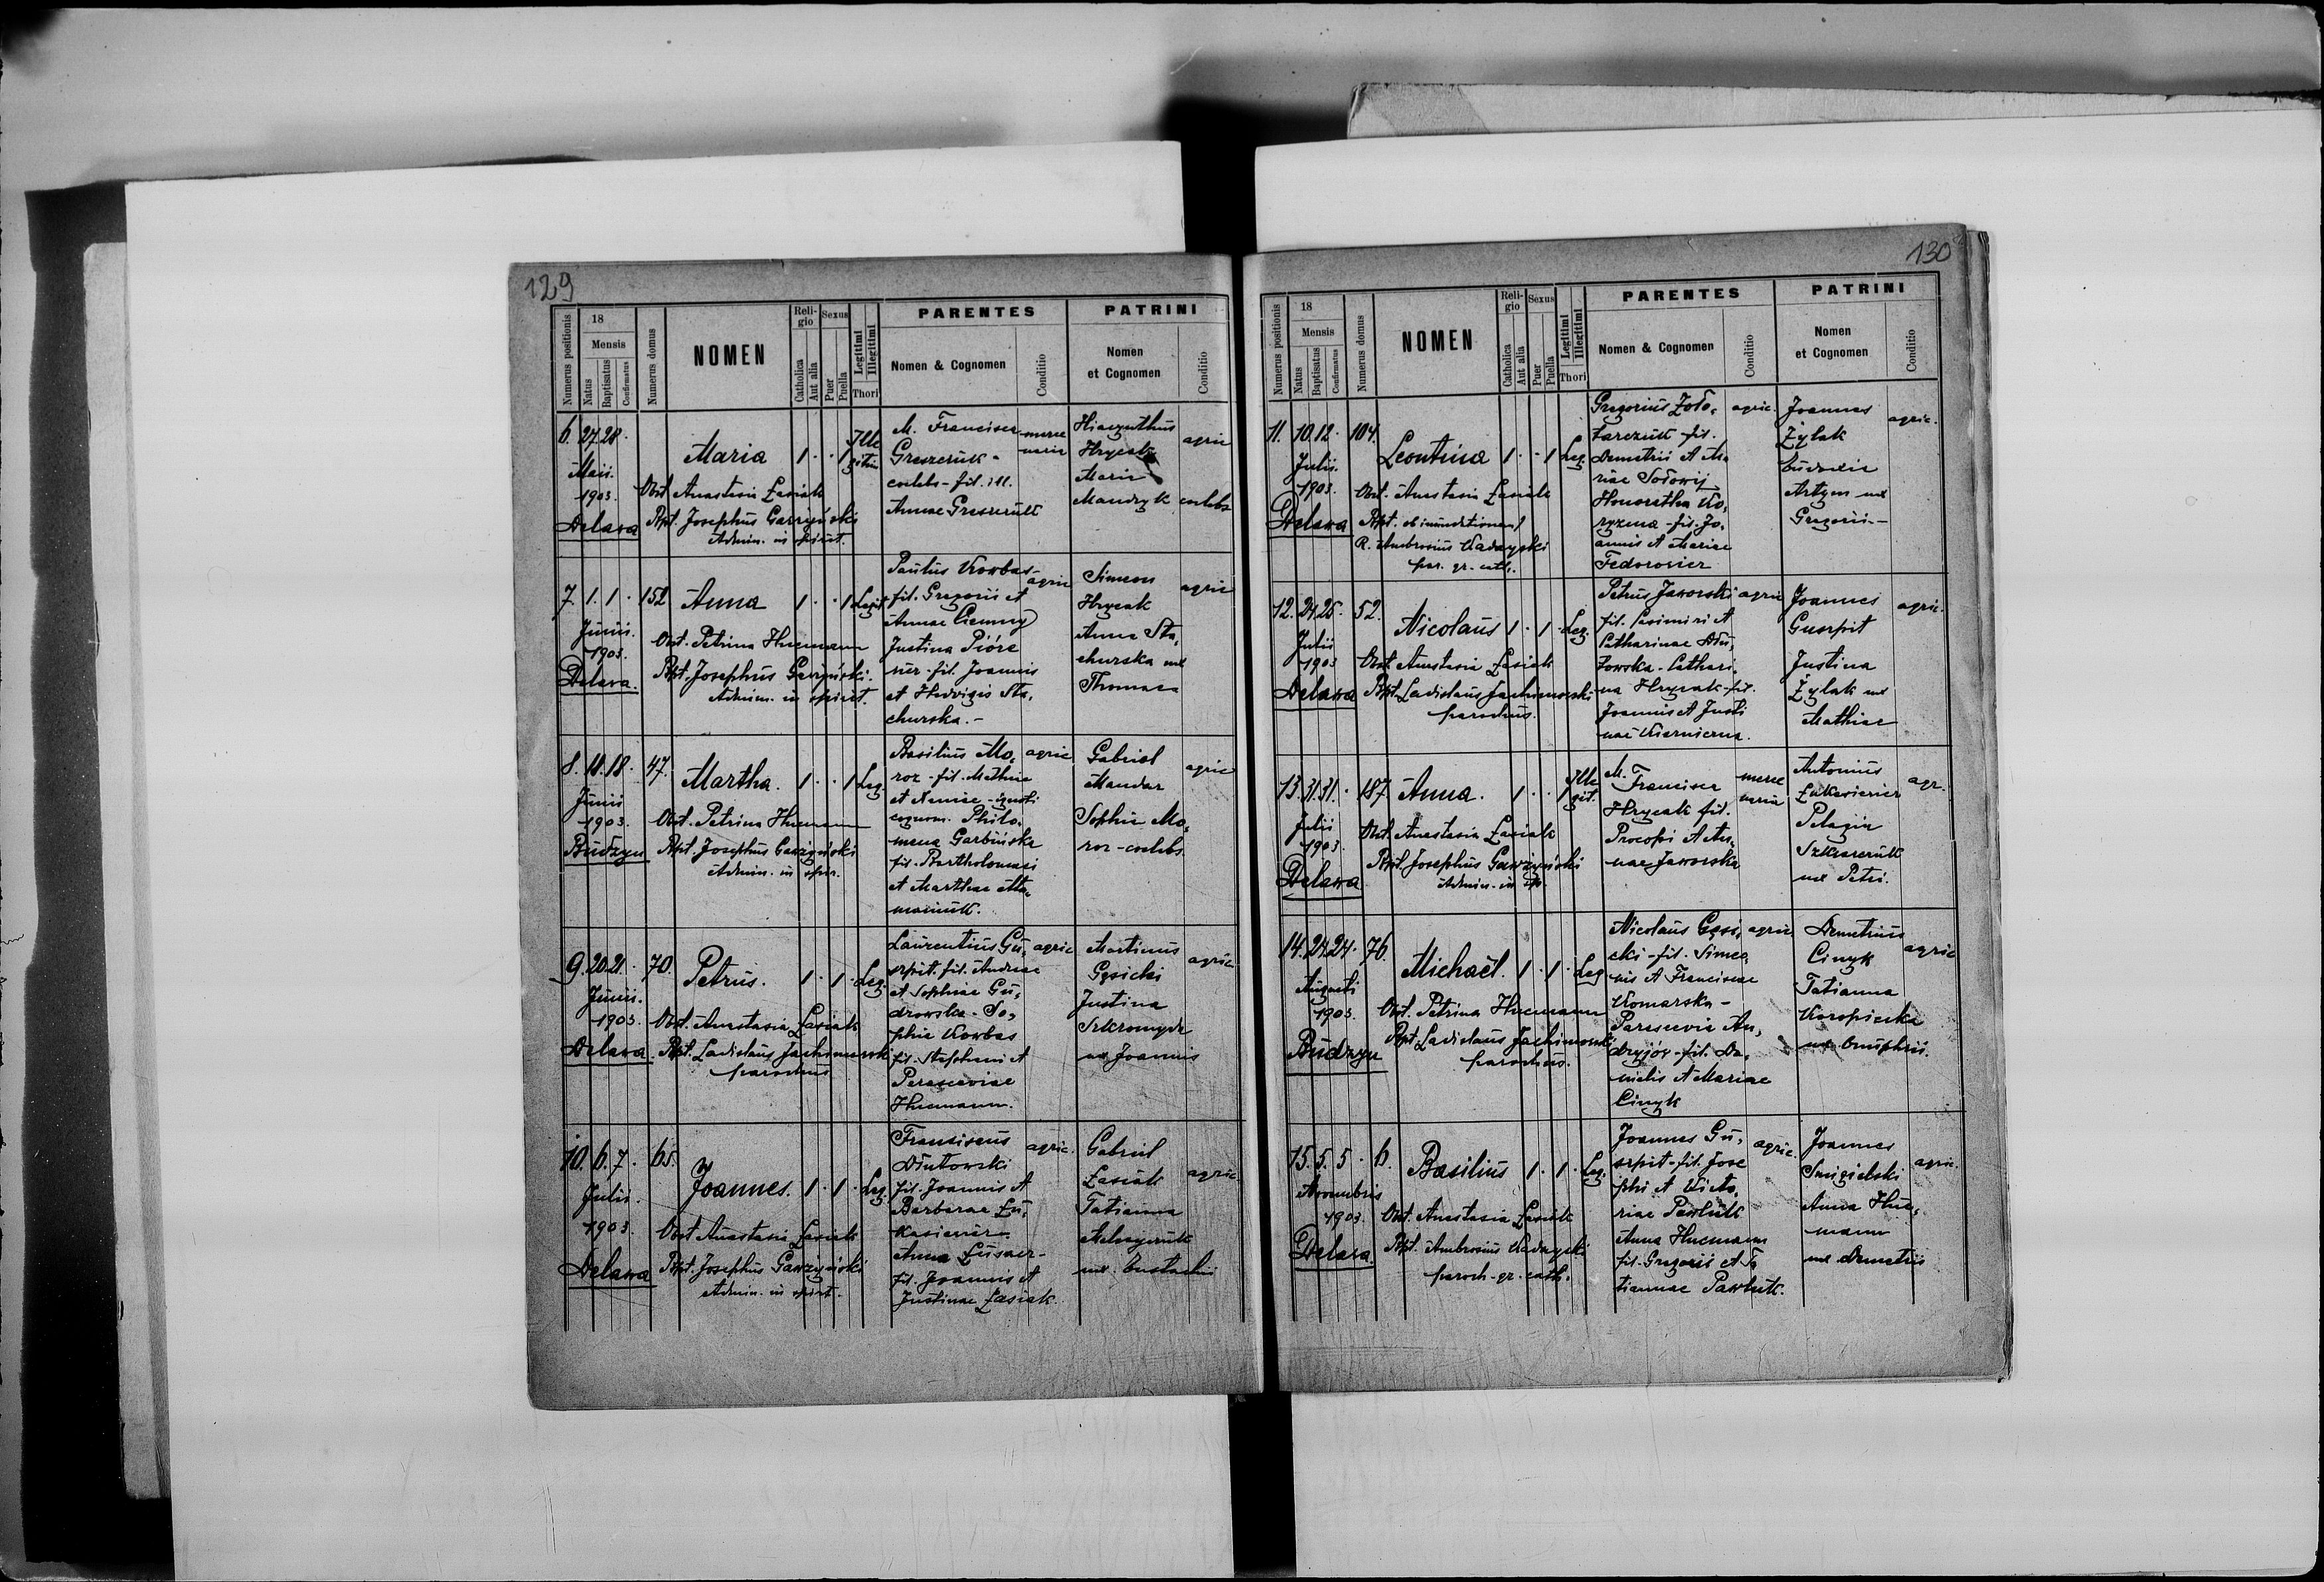 129
Numerus positionis
18
Mensis
Natus
Baptisatus
Confirmatus
Numerus domus
NOMEN
Religio
Catholica
Aut alia
Sexus
Puer
Puella
Legitimi
Illegitimi
Thori
PARENTES
Nomen & Cognomen
Conditio
PATRINI
Nomen
et Cognomen
Conditio
6. 27. 28.
Maii.
1903.
Delawa
Maria 1 · · 1 Ille
gitim
Obst. Anastasia Łasiak
Bpt. Josephus Gawzyński
Admin. in spirit.
M. Francisca
Greszczuk -
coelebs - fil. ill.
Annae Greszczuk
merce
naria
Hiacynthus
Hrycak
Maria
Mandzyk coelebs
agric
7. 1. 1. 152
Junii.
1903.
Delawa.
Anna 1 · · 1 Legit
Obst. Petrina Hucmann
Bpt. Josephus Gawzyński.
Admin. in spirit.
Paulus Korbas -
fil. Gregorii et
Annae Ciemny
Justina Piórc
ner - fil. Joannis
et Hedvigis Sta,
churska. -
agric
Simeon
Hrycak
Anna Sta,
churska ux
Thomae
agric
8. 18. 18. 47.
Junii
1903.
Budzyn
Martha. 1 · · 1 Leg.
Obst. Petrina Hucmann
Bpt. Josephus Gawzyński
Admin. in spir.
Basilius Mo,
roz - fil. Mathiae
et Xeniae - ignoti
cognom. Philo,
mena Garbińska
fil. Bartholomaei
et Marthae Ata,
maniuk.
agric
Gabriel
Mandar
Sophia Mo,
roz - coelebs
agric
9. 20. 21. 70.
Junii.
1903.
Delawa.
Petrus. 1 · 1 · Leg.
Obst. Anastasia Łasiak
Bpt. Ladislaus Jachimowski
parochus
Laurentius Gu,
szpit. fil. Andreae
et Sophiae Gu,
drowska. So,
phia Korbas
fil. Stephani et
Parasceviae
Hucmann.
agric
Martinus
Gęsicki
Justina
Szkromyda
ux Joannis
agric
10. 6. 7. 65.
Julii.
1903.
Delawa
Joannes. 1 · 1 · Leg.
Obst Anastasia Łasiak
Bpt. Josephus Gawzyński
Admin. in spirit.
Franciscus
Dłutowski
fil. Joannis et
Barbarae Łu,
kasiewicz -
Anna Łusacz -
fil. Joannis et
Justinae Łasiak.
agric.
Gabriel
Łasiak
Tatianna
Melnyczuk
ux. Eustachii
agric
130
Numerus positionis
18
Mensis
Natus
Baptisatus
Confirmatus
Numerus domus
NOMEN
Religio
Catholica
Aut alia
Sexus
Puer
Puella
Legitimi
Illegitimi
Thori
PARENTES
Nomen & Cognomen
Conditio
PATRINI
Nomen
et Cognomen
Conditio
11. 10. 12. 104.
Julii.
1903.
Delawa
Leontina 1 · · 1 Leg.
Obst. Anastasia Łasiak
Bpt. ob inundationem/
R. Ambrosius Kadayski
par. gr. cath.
Gregorius Zoło,
tarczuk - fil.
Demetrii et Ma
riae Sołowij
Honoratha Ko,
ryzma - fil. Jo,
annis et Mariae
Fedorowicz
agric.
Joannes
Żylak
Eudoxia
Artym ux
Gregorii -
agric.
12. 24. 25. 52.
Julii
1903
Delawa
Nicolaus 1 · 1 · Leg.
Obst. Anastasia Łasiak
Bpt. Ladislaus Jachimowski
parochus.
Petrus Jaworski
fil. Casimiri et
Catharinae Dłu,
towska - Cathari,
na Hrycak - fil.
Joannis et Justi
nae Kiernicna.
agric
Joannes
Guszpit
Justina
Żylak ux
Mathiae
agric.
13. 31. 31. 187
Julii
1903.
Delawa
Anna. 1 · · 1 Ille
git.
Obst. Anastasia Łasiak
Bpt. Josephus Gawzyński
Admin. in sp.
M. Francisca
Hrycak fil.
Procopi et An,
nae Jaworska
merce
naria
Antonius
Łukasiewicz
Pelagia
Szkwarczuk
ux Petri.
agr.
14. 24. 24. 76.
Augusti
1903.
Budzyn
Michaël. 1 · 1 · Leg
Obst. Petrina Hucmann
Bpt. Ladislaus Jachimowski
parochus.
Nicolaus Gęsi,
cki - fil. Simeo,
nis et Franciscae
Komarska -
Parascevia An,
dryjów - fil. Da,
nielis et Mariae
Cinyk
agric
Demetrius
Cinyk
Tatianna
Koropiecka
ux. Onuphrii.
agric
15. 5. 5. 6.
Novembris
1903.
Delawa.
Basilius 1 · 1 · Leg.
Obst. Anastasia Łasiak
Bpt. Ambrosius Kadayski
paroch. gr. cath.
Joannes Gu,
szpit - fil. Jose
phi et Victo,
riae Pawluk
Anna Hucmann
fil. Gregorii et Ta
tiannae Pawluk.
agric.
Joannes
Smigielski
Anna Huc,
mann
ux Demetrii
agric.